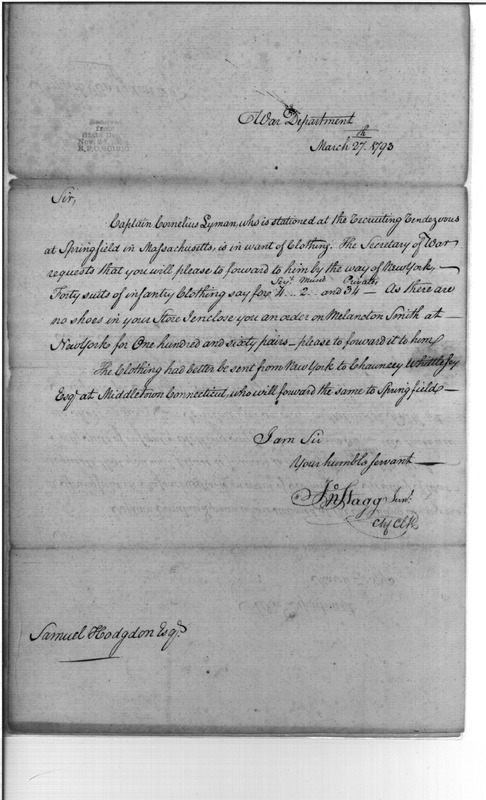 War Department
March 27th. 1793
Received
from
State Dept.
Nov.
Sir,
Captain Cornelius Lyman, who is stationed at the Recruiting Rendezvous
at Springfield in Massachusetts, is in want of Clothing. The Secretary of War
requests that you will please to forward to him by the way of New York,
Serjts Music Privates
Forty suits of infantry Clothing say for 4 .. 2 .. and 34 — As there are
no shoes in your Store I enclose you an order on Melancton Smith at
New York for One hundred and sixty pairs — please to forward it to him.
The Clothing had better be sent from New York to Chauncey Whittlesey
Esqr. at Middletown Connecticut, who will forward the same to Springfield —
I am Sir
Your humble servant —
Jno Stagg Junr.
Chf Clk
Samuel Hodgdon Esqr.